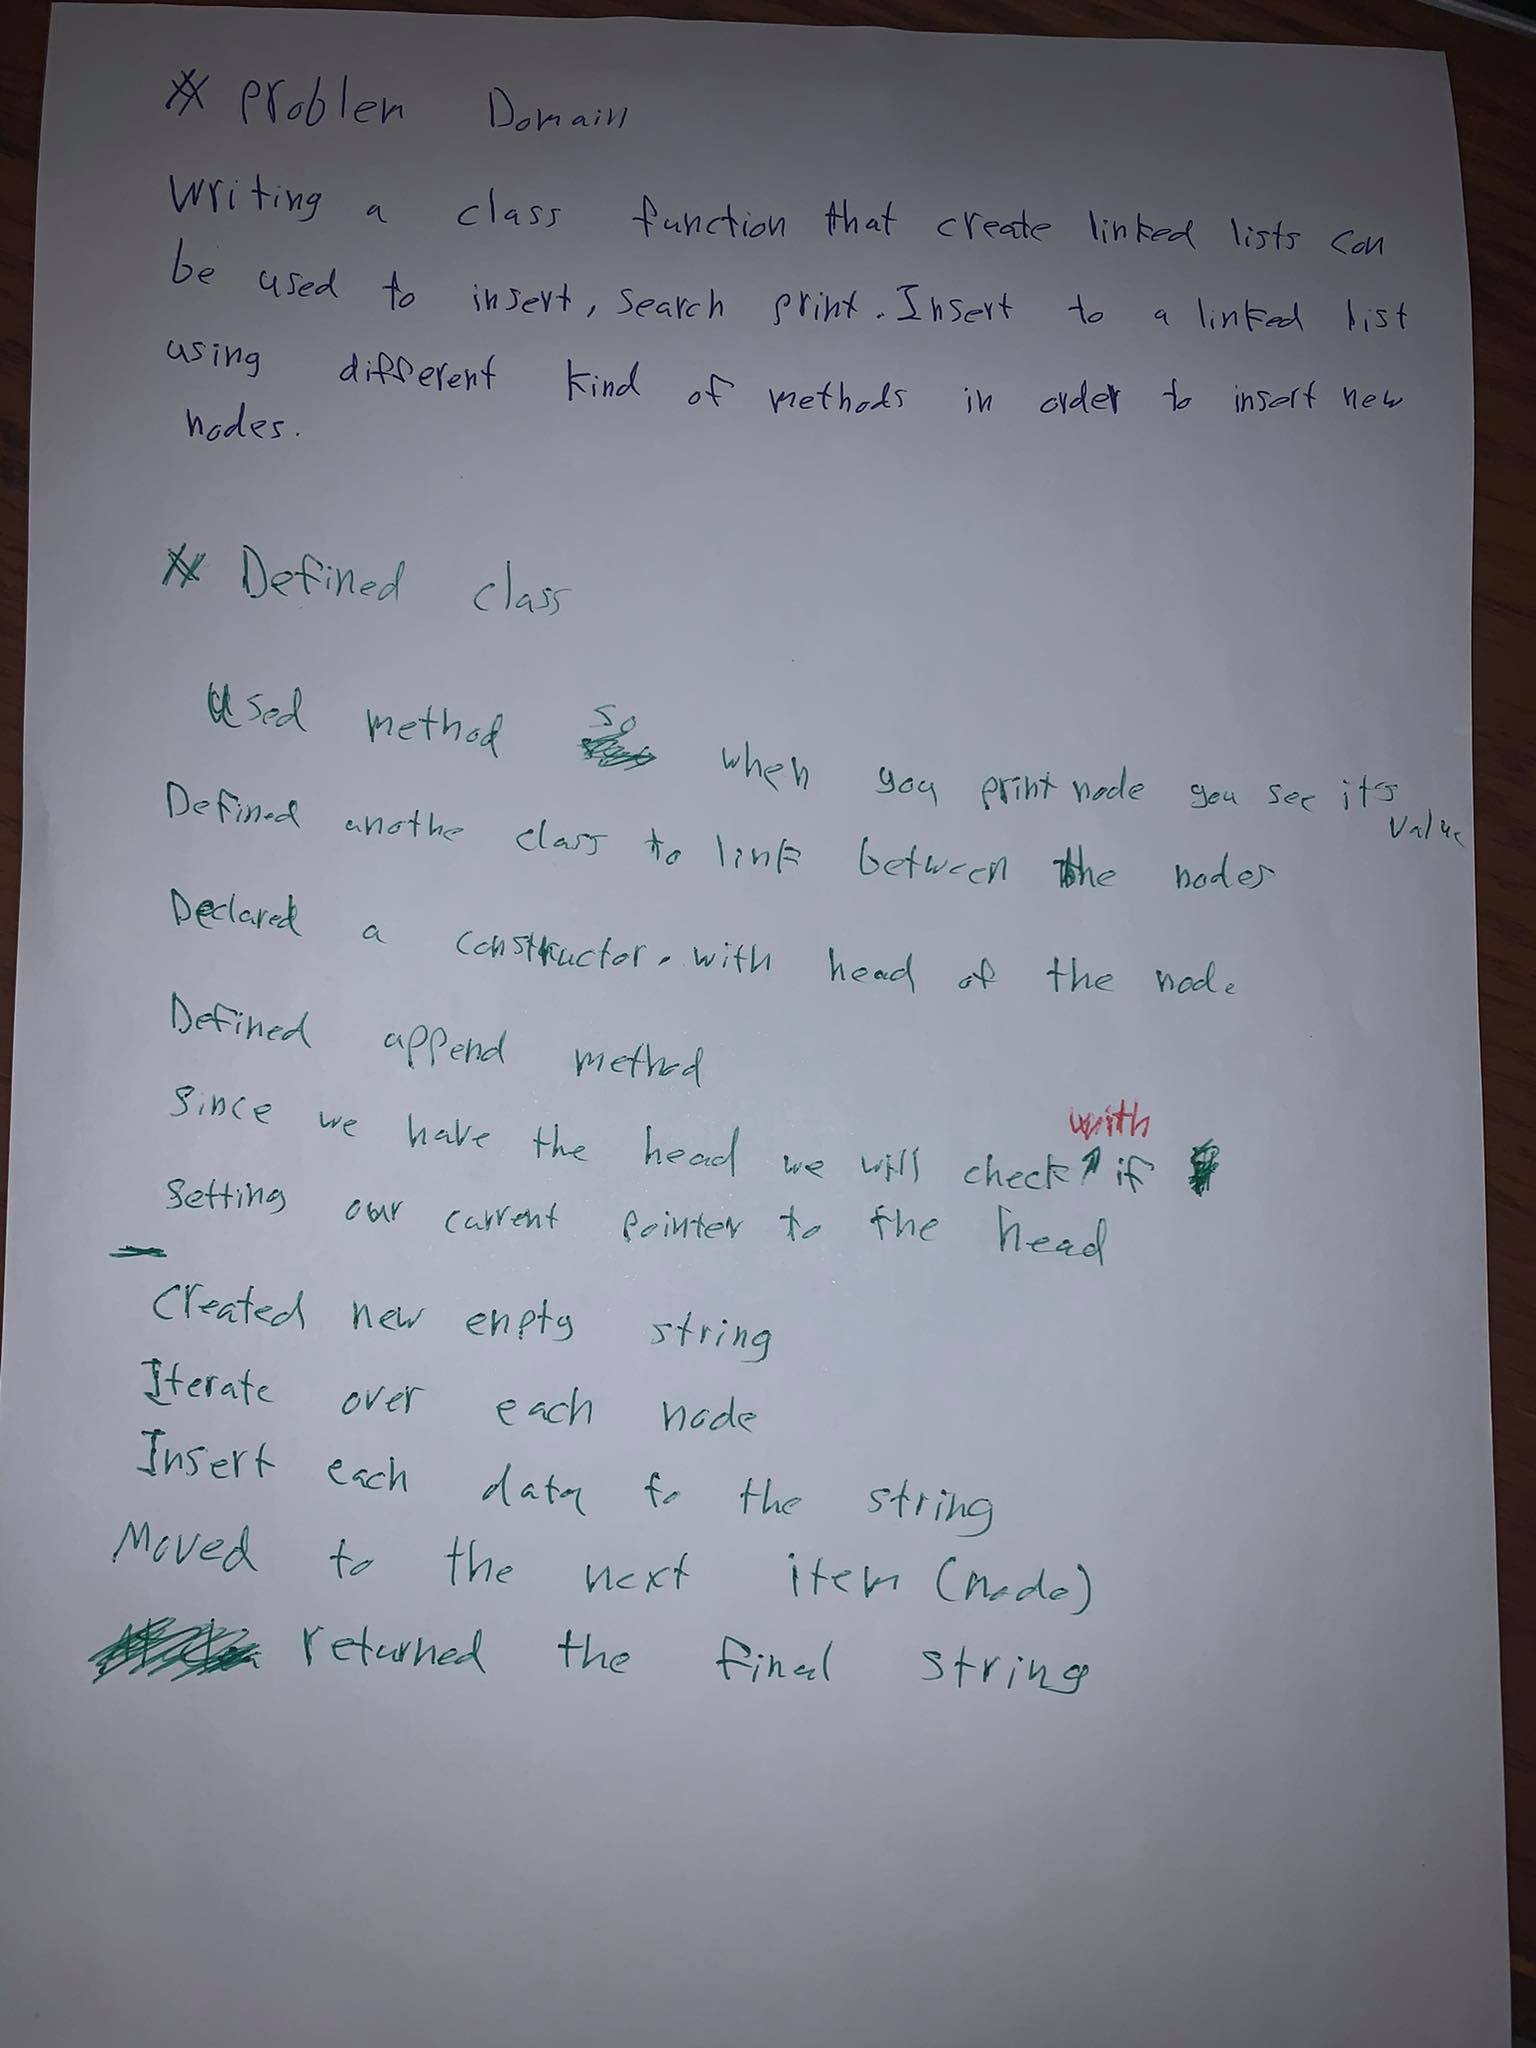 # Problem Domain
Writing a class function that create linked lists can
be used to insert, search print. Insert to a linked list
using different kind of methods in order to insert new
nodes.
# Defined class
Used method so when you print node you see it's value
Defined anothe class to link between the nodes
Declared a constructor. with head of the node
Defined append method
Since we have the head we will check with if
Setting our current pointer to the head
Created new empty string
Iterate over each node
Insert each data to the string
Moved to the next item (node)
returned the final string